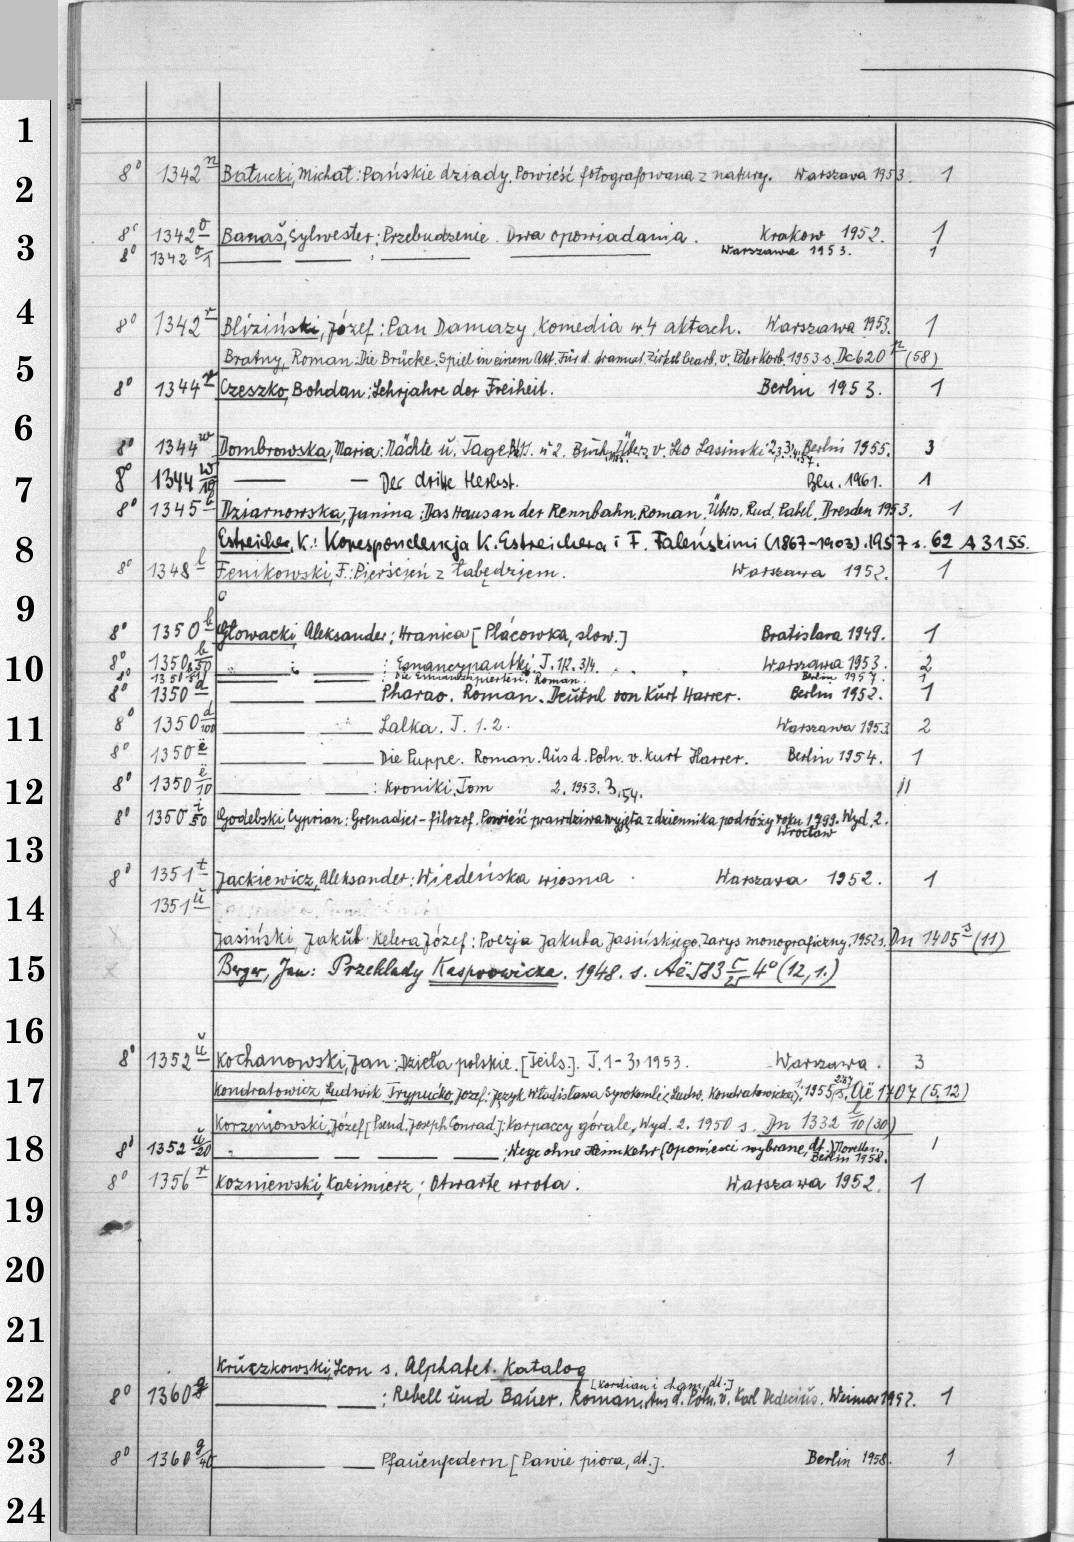 1
8° 1342 n Bałucki, Michał: Pańskie dziady. Powieść fotografowana z natury. Warszawa 1953. 1
2
8° 1342 o Banaś, Sylwester: Przebudzenie. Dwa opowiadania. Krakow 1952. 1
3
8° 1342 o/1 — — : — — Warszawa 1953. 1
4
8° 1342 r Bliziński, Józef: Pan Damazy, Komedia w 4 aktach. Warszawa 1953. 1
Bratny, Roman: Die Brücke. Spiel in einem Akt. Für d. dramat. Zirkel bearb. v. Peter Korb. 1953 s. Dc 620 n (58)
5
8° 1344 r Czeszko, Bohdan: Lehrjahre der Freiheit. Berlin 1953. 1
6
8° 1344 w Dombrowska, Maria: Nächte u. Tage. 1. u. 2. Buch. Übers. v. Leo Lasinski. 2, 3, 4. 57. Berlin 1955. 3
7
8° 1344 w/10 — — Der dritte Herbst. Bln. 1961. 1
8° 1345 b Dziarnowska, Janina: Das Haus an der Rennbahn. Roman. Übers. Rud. Pabel. Dresden 1953. 1
8
Estreicher, K.: Korespondencja K. Estreichera i F. Faleńskimi (1867-1903). 1957 s. 62 A 3155.
8° 1348 l Fenikowski, F.: Pierścień z łabędziem. Warszawa 1952. 1
9
8° 1350 b Głowacki, Aleksander: Hranica [Plácowka, slow.] Bratislava 1949. 1
10
8° 1350 b/50 " " : Emancypantki. T. 1/2. 3/4. Warszawa 1953. 2
8° 1350 : Die Emanzipierten. Roman. Berlin 1957. 1
8° 1350 d — — Pharao. Roman. Deutsch von Kurt Harrer. Berlin 1952. 1
11
8° 1350 d/100 — — Lalka. T. 1. 2. Warszawa 1953 2
8° 1350 ë — — Die Puppe. Roman. Aus d. Poln. v. Kurt Harrer. Berlin 1954. 1
12
8° 1350 ë/10 — — : Kroniki, Tom 2. 1953. 3, 54. 11
8° 1350 i/50 Godebski, Cyprian: Grenadier-filozof. Powieść prawdziwa wyjęta z dziennika podróży roku 1799. Wyd. 2.
Wrocław
13
8° 1351 t Jackiewicz, Aleksander: Wiedeńska wiosna. Warszawa 1952. 1
14
1351 ŭ
Jasiński, Jakub. Kelera Józef: Poezja Jakuba Jasińskiego. Zarys monograficzny. 1952 s. Dn 1405 s (11)
15
Berger, Jan: Przekłady Kasprowicza. 1948. s. Aë 583 r/25 4° (12,1.)
16
8° 1352 ŭ Kochanowski, Jan: Dzieła polskie. [Teils.]. T. 1-3, 1953. Warszawa. 3
17
Kondratowicz, Ludwik Trypućko, Józef: Język Władysława Syrokomli (Ludw. Kondratowicza). 1. 1955 s. Aë 1707 (5,12)
Korzeniowski, Józef [Pseud. Joseph Conrad]: Karpaccy górale, Wyd. 2. 1950 s. Dn 1332 l/10 (30)
18
8° 1352 ŭ/20 — — — — : Wege ohne Heimkehr (Opowieści wybrane, dt.) Novellen. Berlin 1958. 1
8° 1356 r Kozniewski, Kazimierz: Otwarte wrota. Warszawa 1952. 1
19
20
21
Kruczkowski, Leon s. Alphabet. Katalog
[Kordian i cham, dt.]
22
8° 1360 g — — : Rebell und Bauer. Roman. Aus d. Poln. v. Karl Dedecius. Weimar 1952. 1
23
8° 1360 g/40 — — Pfauenfedern [Pawie piora, dt.]. Berlin 1958. 1
24